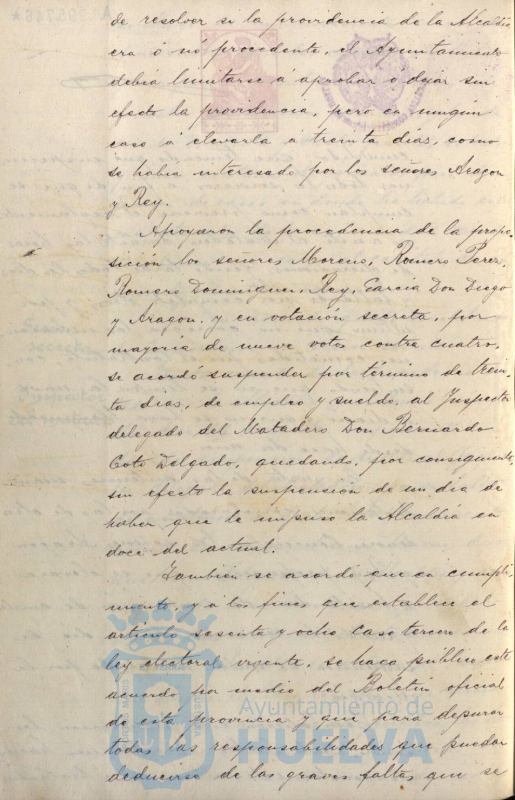 de resolver si la providencia de la Alcaldía
era ó no procedente, el Ayuntamiento
debía limitarse á aprobar ó dejar sin
efecto la providencia, pero en ningún
caso á elevarla á treinta días, como
se había interesado por los señores Aragon
y Rey.
Apoyaron la procedencia de la propo-
sición los señores Moreno, Romero Perez,
Romero Dominguez, Rey, Garcia Don Diego
y Aragon, y en votación secreta, por
mayoría de nueve votos contra cuatro,
se acordó suspender por término de trein-
ta dias, de empleo y sueldo, al Inspector
delegado del Matadero Don Bernardo
Coto Delgado, quedando, por consiguiente,
sin efecto la suspención de un dia de
haber que le impuso la Alcaldía en
doce del actual.
También se acordó que en cumpli-
miento, y á los fines que establece el
artículo sesenta y ocho caso tercero de la
ley electoral vigente, se haga público este
acuerdo por medio del Boletín oficial
de esta provincia y que para depurar
todas las responsabilidades que puedan
deducirse de las graves faltas que se
Ayuntamiento de
HUELVA